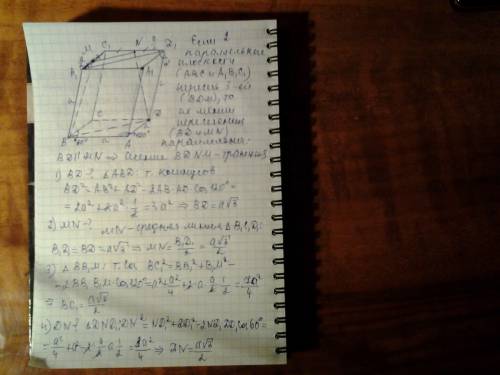 Если 2
параллельные
плоскости
(ABC и A₁B₁C₁)
3-ей
(BDM), то
их линии
пересечения
(BD и MN)
параллельны.
BD || MN ⇒ сечение BDNM - трапеция
1) BD-? △ABD: т. косинусов
BD² = AB² + AD² - 2AB·AD cos120° =
= 2a² + 2a²·1/2 = 3a² ⇒ BD = a√3
2) MN-? MN - средняя линия △B₁C₁D₁:
B₁D₁ = BD = a√3 ⇒ MN = B₁D₁/2 = a√3/2
3) △BB₁M: т. cos = BB₁² + B₁M² -
- 2BB₁·B₁M·cos120° = a² + a²/4 + 2·a·a/2·1/2 = 7a²/4
4) DN-? △DND₁: DN² = ND₁² + DD₁² - 2ND₁·DD₁cos60° =
= a²/4 + a² - 2·a/2·a·1/2 = 3a²/4 ⇒ DN = a√3/2